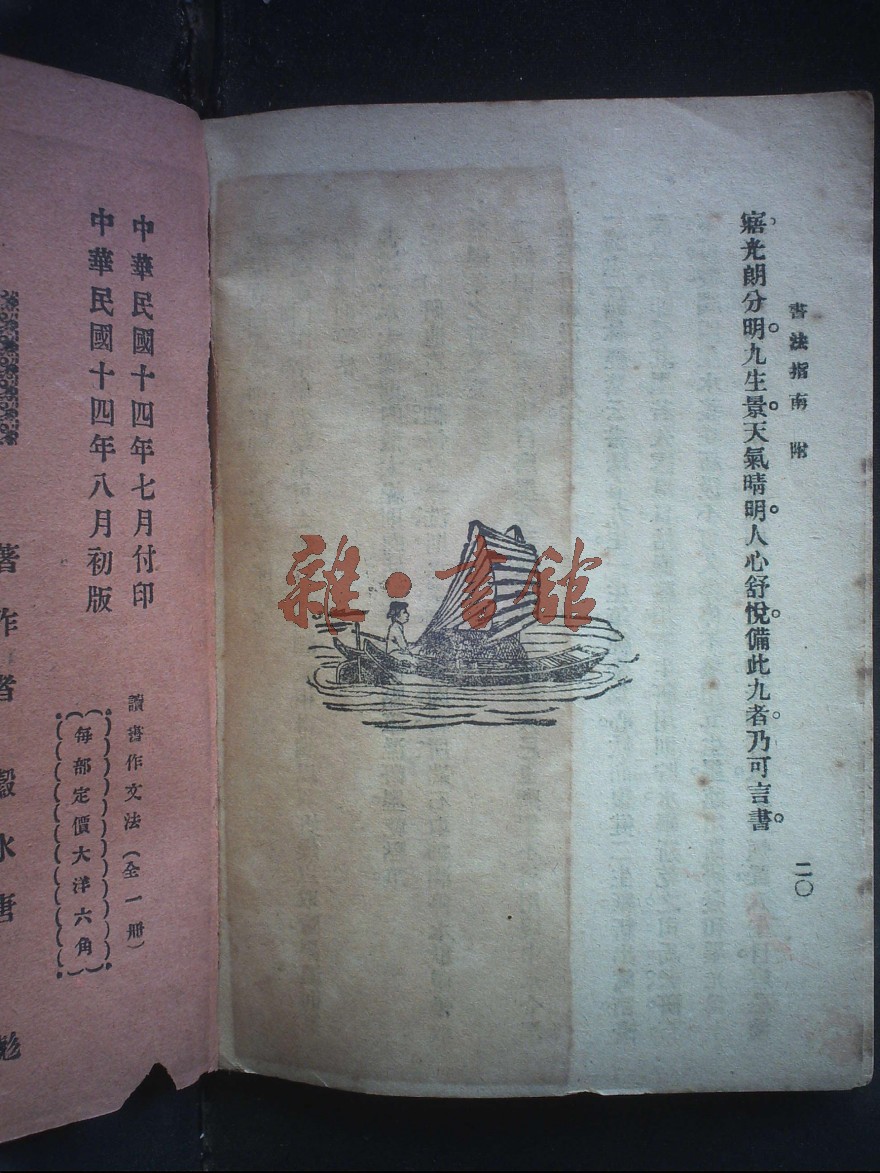 書法指南 附
寤光朗分明九生景天氣晴明人心舒悅備此九者乃可言書
二〇
雜·書館
中華民國十四年七月付印
中華民國十四年八月初版
讀書作文法（全一冊）
每部定價大洋六角
著作者 穀水唐彪